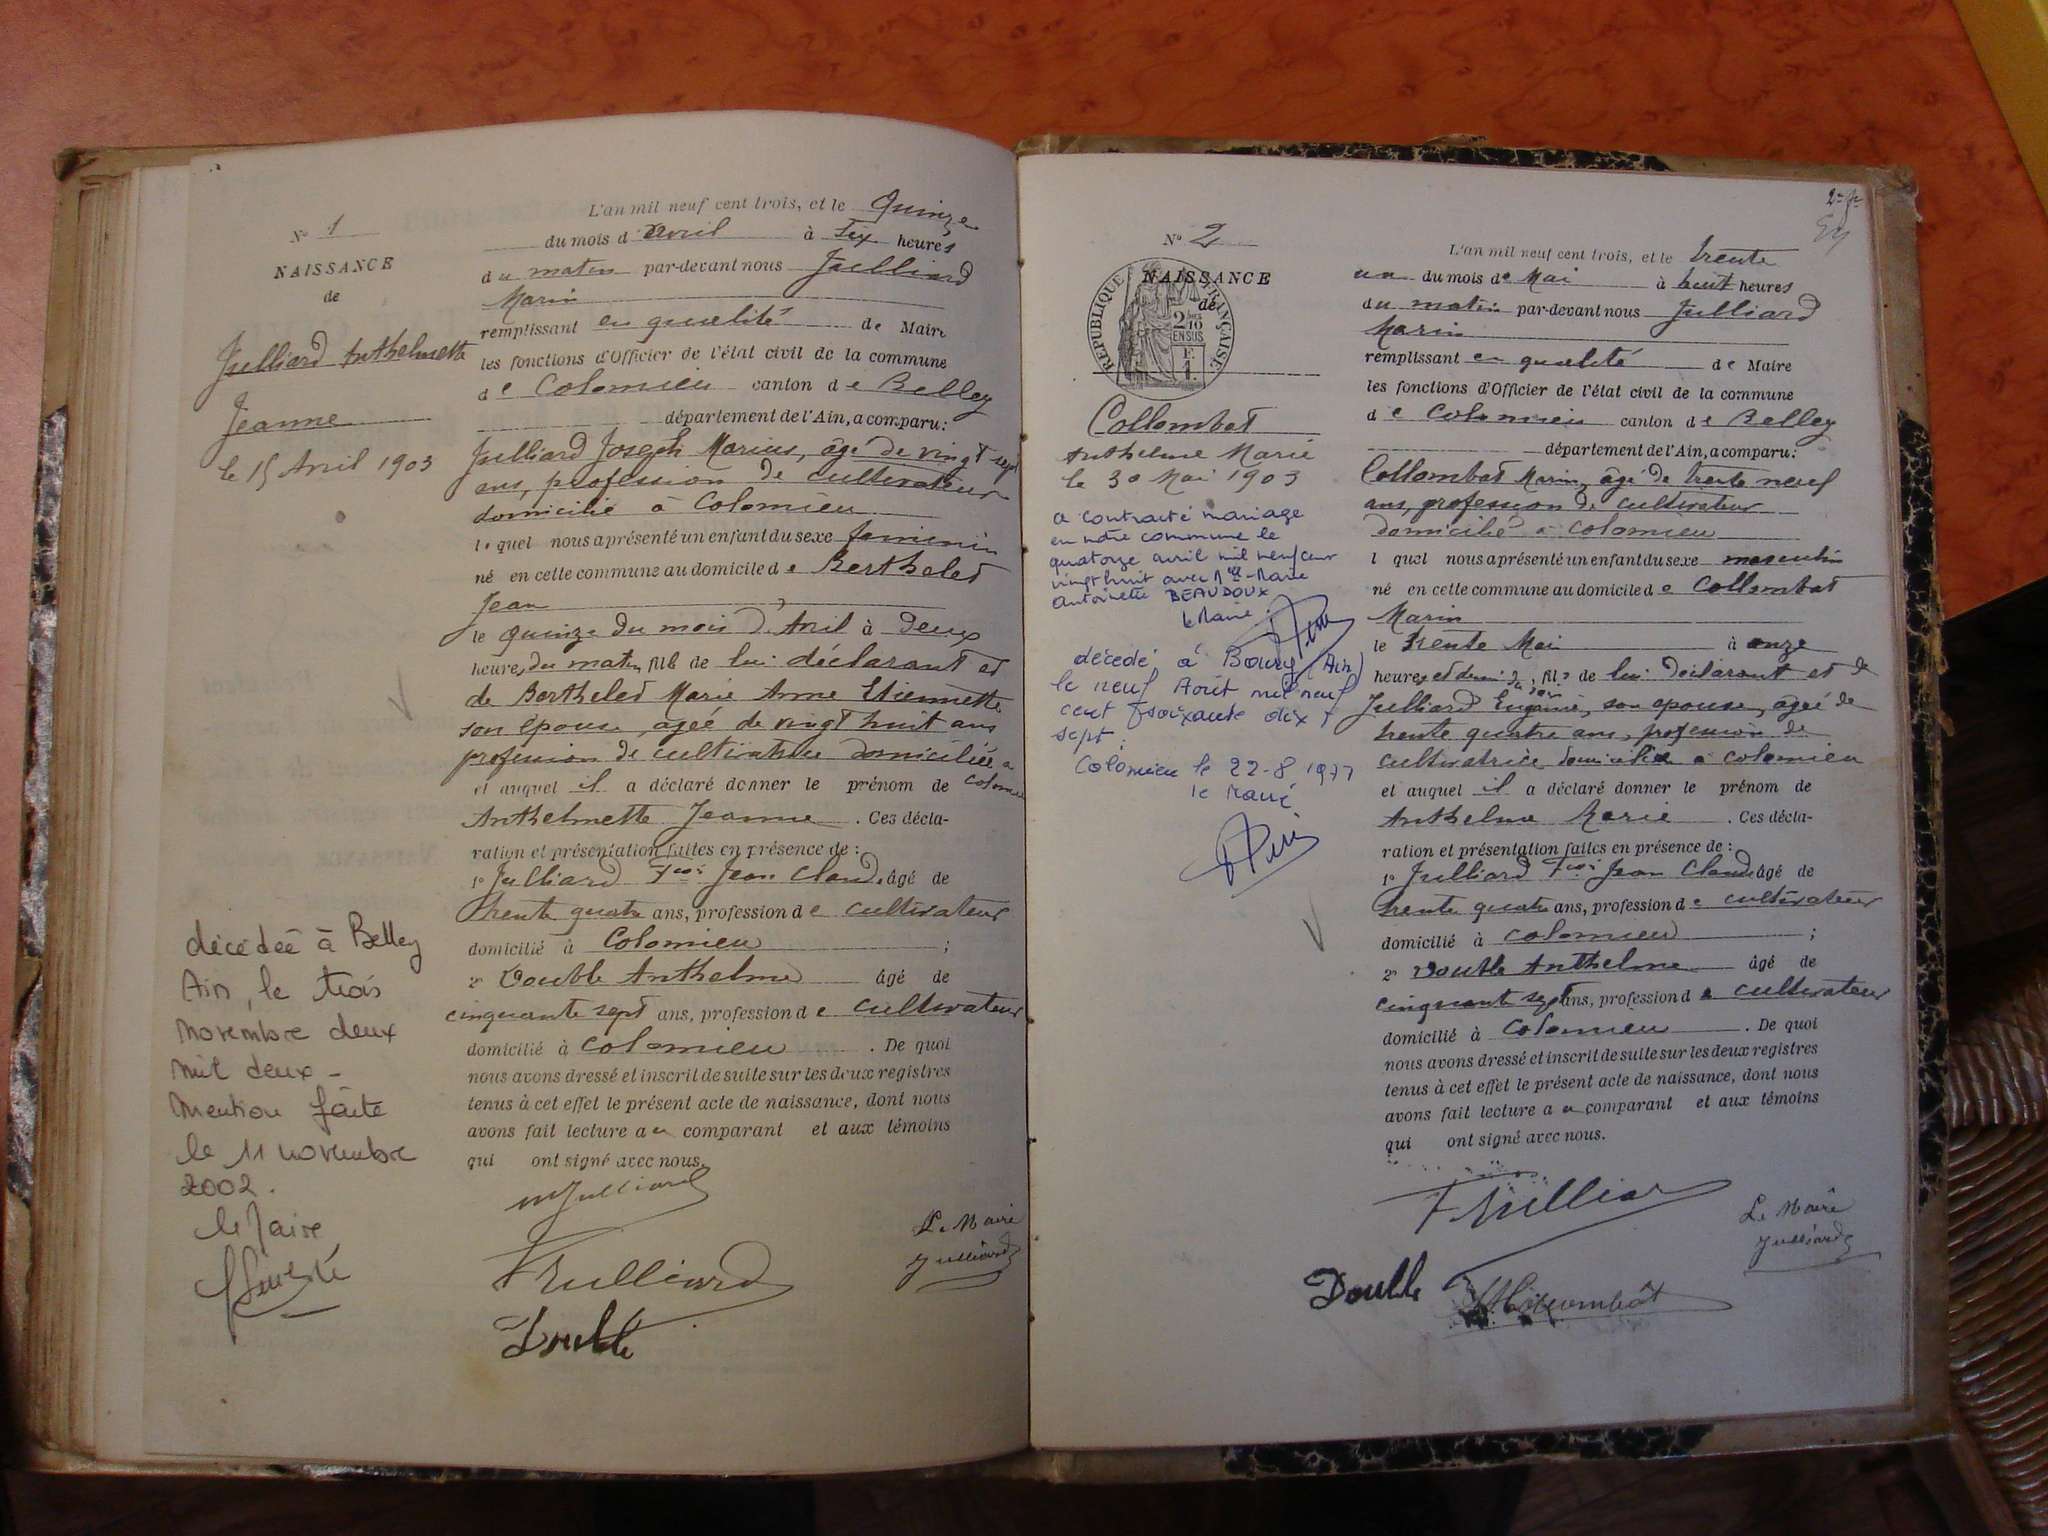 N° 1
NAISSANCE
de
Julliard Anthelmette
Jeanne
le 15 Avril 1903
décédée à Belley
Ain, le trois
novembre deux
mil deux -
Mention faite
le 11 novembre
2002.
le Maire
L'an mil neuf cent trois, et le Quinze
du mois d'Avril à Six heures
du matin par-devant nous Julliard
Marin
remplissant en qualité de Maire
les fonctions d'Officier de l'état civil de la commune
de Colomieu canton de Belley
département de l'Ain, a comparu:
Julliard Joseph Marius, âgé de vingt sept
ans, profession de cultivateur
domicilié à Colomieu
lequel nous a présenté un enfant du sexe feminin
né en cette commune au domicile de Berthelet
Jean
le quinze du mois d'Avril à Deux
heures du matin, fille de lui déclarant et
de Berthelet Marie Anne Etiennette
son epouse, agée de vingt huit ans
profession de cultivatrice domiciliée a
et auquel il a déclaré donner le prénom de Colomieu
Anthelmette Jeanne. Ces décla-
ration et présentation faites en présence de:
1° Julliard Fçois Jean Claude âgé de
trente quatre ans, profession de cultivateur
domicilié à Colomieu ;
2° Double Anthelme âgé de
cinquante sept ans, profession de cultivateur
domicilié à Colomieu. De quoi
nous avons dressé et inscrit de suite sur les deux registres
tenus à cet effet le présent acte de naissance, dont nous
avons fait lecture au comparant et aux témoins
qui ont signé avec nous.
mJulliard
FJulliard
Double
Le Maire
Julliard
N° 2
NAISSANCE
de
RÉPUBLIQUE FRANÇAISE
2/10
EN SUS
Collombat
Anthelme Marie
le 30 Mai 1903
a contracté mariage
en notre commune le
quatorze avril mil neuf cent
vingt huit avec Mlle Marie
Antoinette BEAUDOUX
le Maire
décédé à Bourg (Ain)
le neuf Août mil neuf
cent soixante dix
sept.
Colomieu le 22-8 1977
le Maire
L'an mil neuf cent trois, et le trente
un du mois de Mai à huit heures
du matin par-devant nous Julliard
Marin
remplissant en qualité de Maire
les fonctions d'Officier de l'état civil de la commune
de Colomieu canton de Belley
département de l'Ain, a comparu:
Collombat Marin, âgé de trente neuf
ans, profession de cultivateur
domicilié à Colomieu
lquel nous a présenté un enfant du sexe masculin
né en cette commune au domicile de Collombat
Marin
le trente Mai à onze
heures et demi du soir, fils de lui déclarant et de
Julliard Eugénie, son epouse, agée de
trente quatre ans, profession de
cultivatrice domiciliée à Colomieu
et auquel il a déclaré donner le prénom de
Anthelme Marie. Ces décla-
ration et présentation faites en présence de:
1° Julliard Fçois Jean Claude âgé de
trente quatre ans, profession de cultivateur
domicilié à Colomieu ;
2° Double Anthelme âgé de
cinquante sept ans, profession de cultivateur
domicilié à Colomieu. De quoi
nous avons dressé et inscrit de suite sur les deux registres
tenus à cet effet le présent acte de naissance, dont nous
avons fait lecture au comparant et aux témoins
qui ont signé avec nous.
Le Maire
Julliard
Double